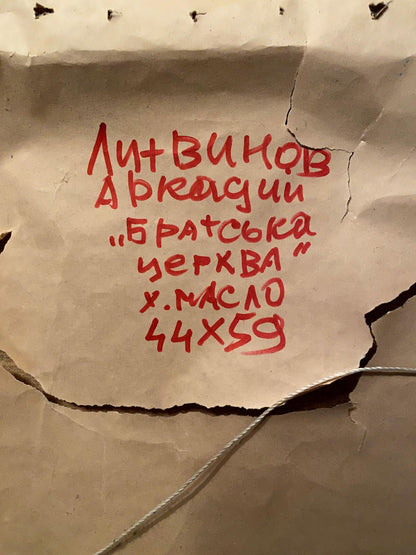 Литвинов
Аркадий
„Братська
церква”
х. масло
44х59